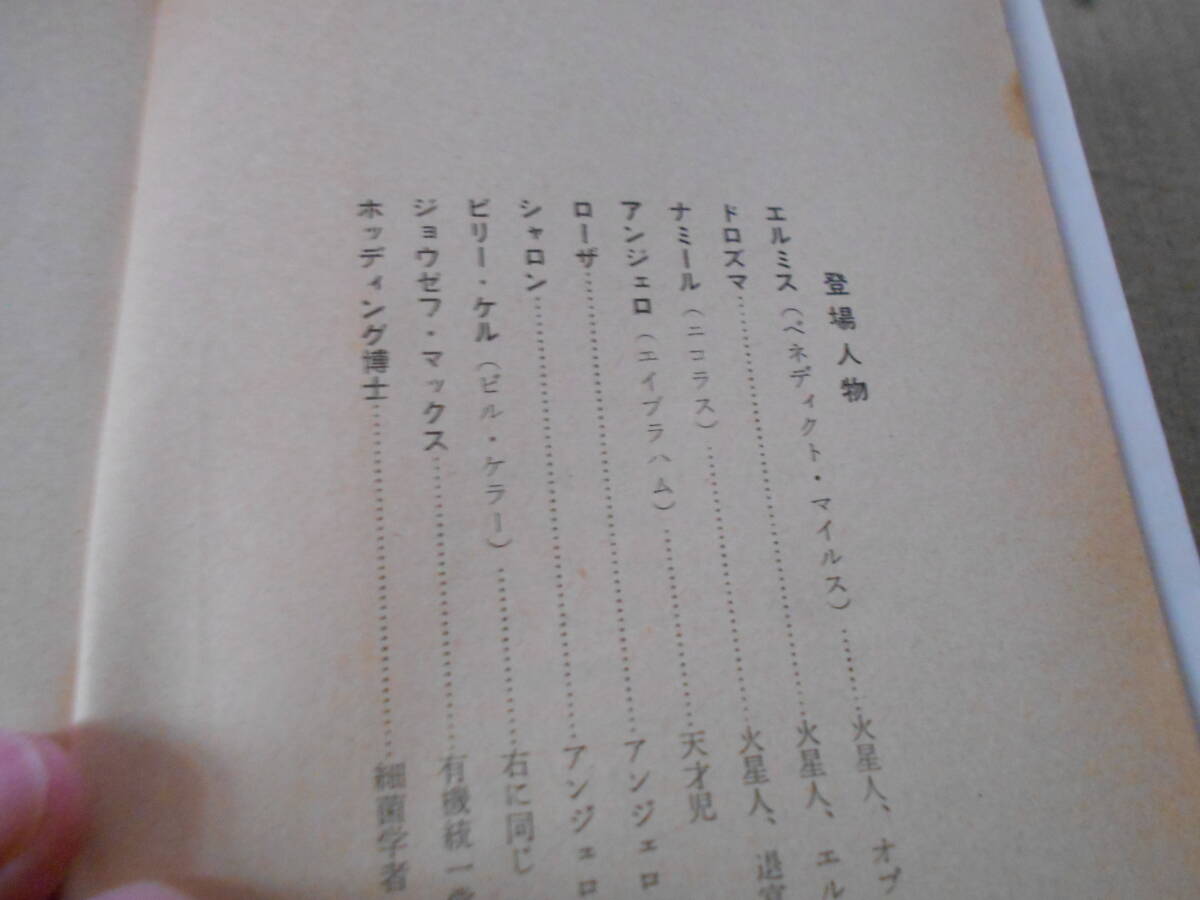 登場人物
エルミス（ベネディクト・マイルス）……火星人、オブ
ドロズマ……火星人、エル
ナミール（ニコラス）……火星人、退
アンジェロ（エイブラハム）……天才児
ローザ……アンジェロ
シャロン……アンジェロ
ビリー・ケル（ビル・ケラー）……右に同じ
ジョウゼフ・マックス……有機統一
ホッディング博士……細菌学者